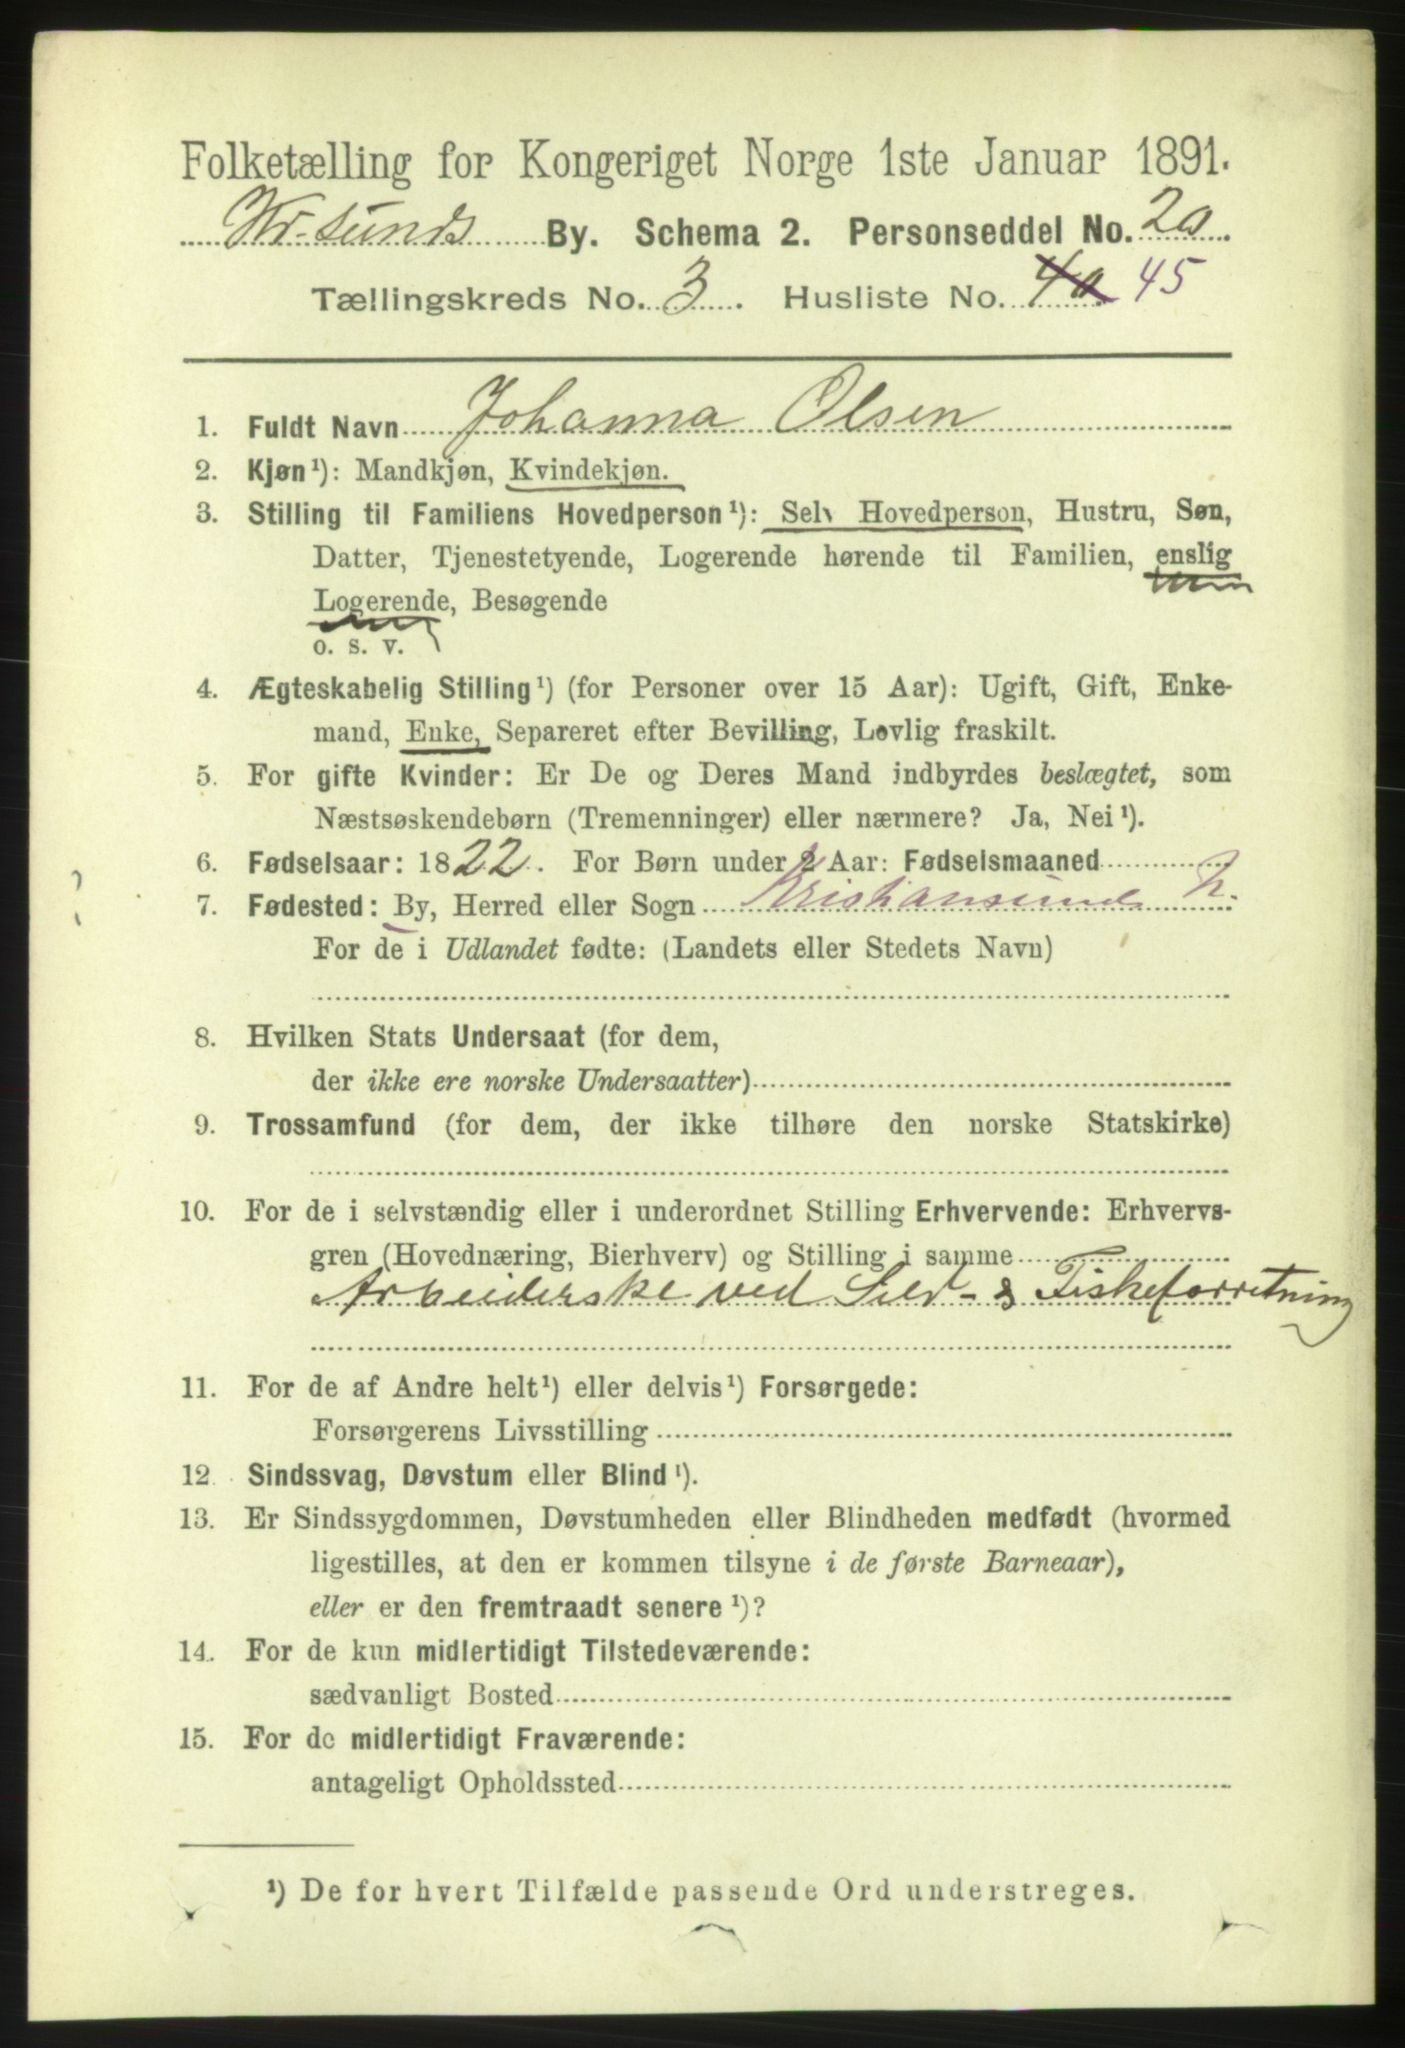 Folketælling for Kongeriget Norge 1ste Januar 1891.
Kr.sunds By. Schema 2. Personseddel No. 20.
Tællingskreds No. 3. Husliste No. 40 45
1. Fuldt Navn Johanna Olsen
2. Kjøn¹): Mandkjøn, Kvindekjøn.
3. Stilling til Familiens Hovedperson¹): Selv Hovedperson, Hustru, Søn,
Datter, Tjenestetyende, Logerende hørende til Familien, enslig
Logerende, Besøgende
o. s. v.
4. Ægteskabelig Stilling¹) (for Personer over 15 Aar): Ugift, Gift, Enke-
mand, Enke, Separeret efter Bevilling, Lovlig fraskilt.
5. For gifte Kvinder: Er De og Deres Mand indbyrdes beslægtet, som
Næstsøskendebørn (Tremenninger) eller nærmere? Ja, Nei¹).
6. Fødselsaar: 1822. For Børn under 2 Aar: Fødselsmaaned
7. Fødested: By, Herred eller Sogn Kristiansund N.
For de i Udlandet fødte: (Landets eller Stedets Navn)
8. Hvilken Stats Undersaat (for dem,
der ikke ere norske Undersaatter)
9. Trossamfund (for dem, der ikke tilhøre den norske Statskirke)
10. For de i selvstændig eller i underordnet Stilling Erhvervende: Erhvervs-
gren (Hovednæring, Bierhverv) og Stilling i samme
Arbeiderske ved Sild- & Fiskeforretning
11. For de af Andre helt¹) eller delvis¹) Forsørgede:
Forsørgerens Livsstilling
12. Sindssvag, Døvstum eller Blind¹).
13. Er Sindssygdommen, Døvstumheden eller Blindheden medfødt (hvormed
ligestilles, at den er kommen tilsyne i de første Barneaar),
eller er den fremtraadt senere¹)?
14. For de kun midlertidigt Tilstedeværende:
sædvanligt Bosted
15. For de midlertidigt Fraværende:
antageligt Opholdssted
¹) De for hvert Tilfælde passende Ord understreges.